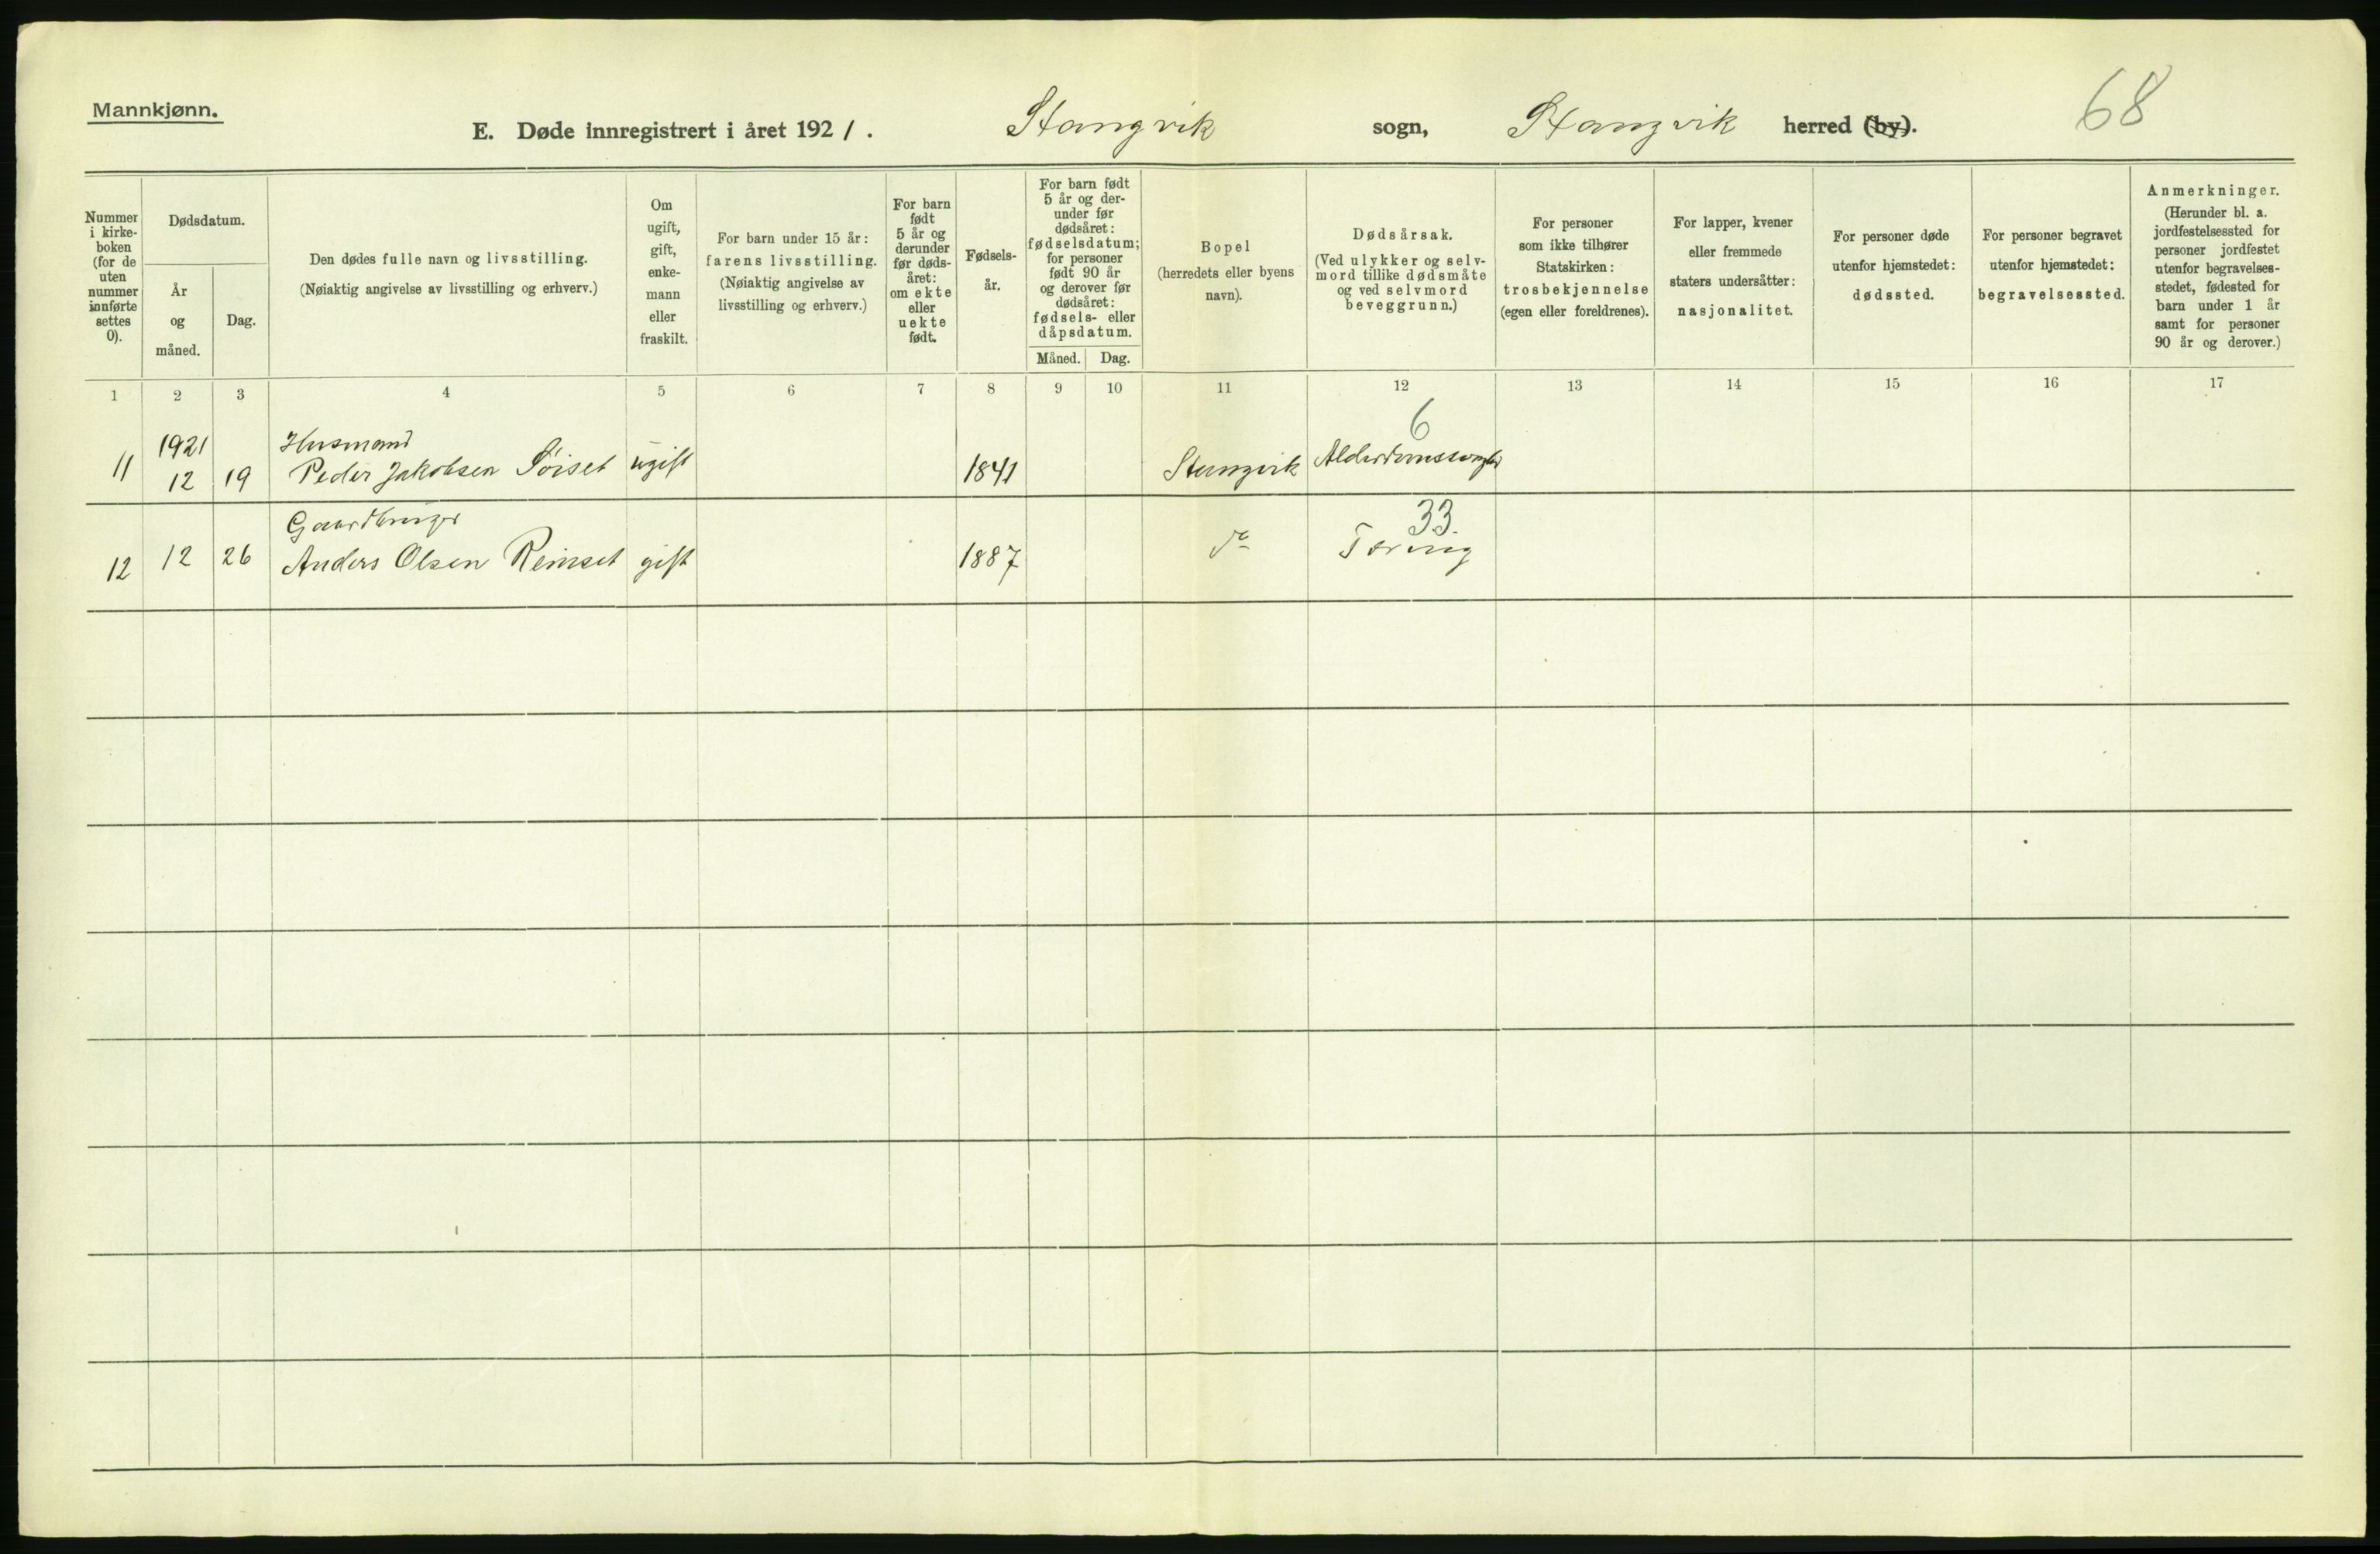 Mannkjønn.
E. Døde innregistrert i året 1921. Stangvik sogn, Stangvik herred (by).
68
Nummer i kirke-boken (for de uten nummer innførte settes 0).
Dødsdatum.
År og måned.
Dag.
Den dødes fulle navn og livsstilling.
(Nøiaktig angivelse av livsstilling og erhverv.)
Om ugift, gift, enke-mann eller fraskilt.
For barn under 15 år: farens livsstilling.
(Nøiaktig angivelse av livsstilling og erhverv.)
For barn født 5 år og derunder før døds-året: om ekte eller uekte født.
Fødsels-år.
For barn født 5 år og der-under før dødsåret: fødselsdatum; for personer født 90 år og derover før dødsåret: fødsels- eller dåpsdatum.
Måned. Dag.
Bopel
(herredets eller byens navn).
Dødsårsak.
(Ved ulykker og selv-mord tillike dødsmåte og ved selvmord beveggrunn.)
For personer som ikke tilhører Statskirken: trosbekjennelse (egen eller foreldrenes).
For lapper, kvener eller fremmede staters undersåtter: nasjonalitet.
For personer døde utenfor hjemstedet: dødssted.
For personer begravet utenfor hjemstedet: begravelsessted.
Anmerkninger.
(Herunder bl. a. jordfestelsessted for personer jordfestet utenfor begravelses-stedet, fødested for barn under 1 år samt for personer 90 år og derover.)
1 2 3 4 5 6 7 8 9 10 11 12 13 14 15 16 17
1921 Husmand 6
11 12 19 Peder Jakobsen ugift 1841 Stangvik
Gaardbruger 33.
12 12 26 Anders Olsen Reinset gift 1887 do Tæring